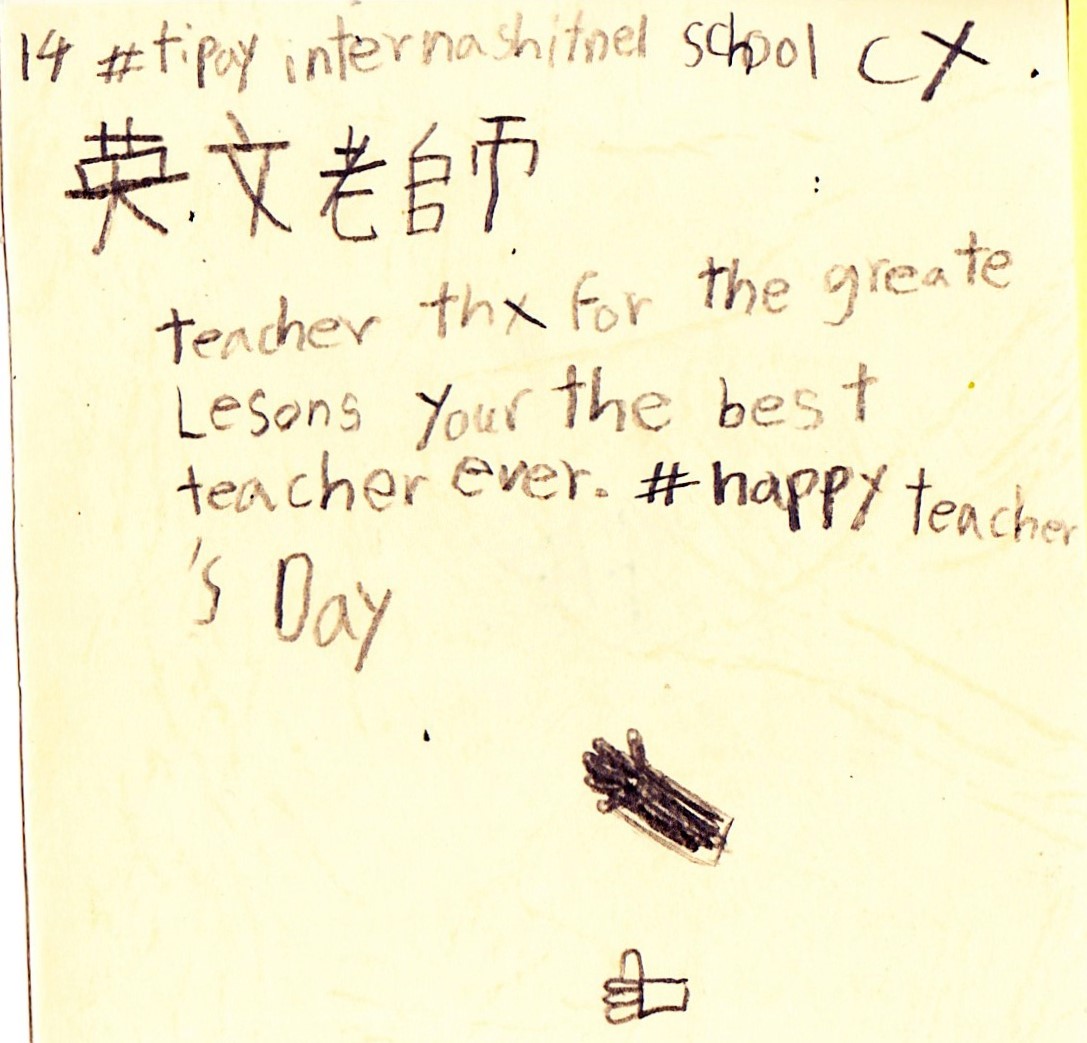 14 #tipay internashitnel school CX.
英文老師
teacher thx for the greate
Lesons your the best
teacher ever. #happy teacher
's Day